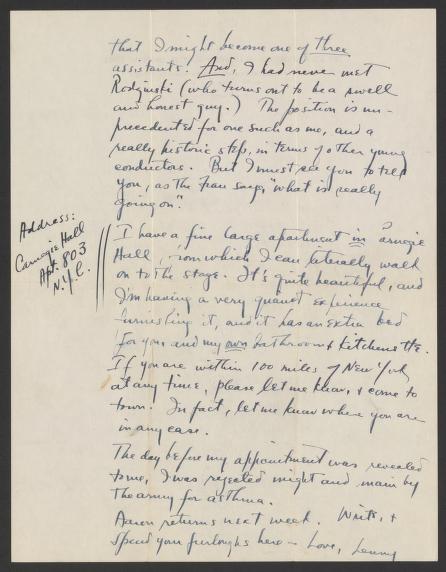 that I might become one of three
assistants. And, I had never met
Rodzinski (who turns out to be a swell
and honest guy.) The position is un-
precedented for one such as me, and a
really historic step, in terms of other young
conductors. But I must see you to tell
you, as the Frau says, "what is really
going on".
Address:
Carnegie Hall
Apt. 803
N.Y.C.
I have a fine large apartment in Carnegie
Hall, from which I can literally walk
on to the stage. It's quite beautiful, and
I'm having a very quaint experience
furnishing it, and it has an extra bed
for you and my own bathroom & kitchenette.
If you are within 100 miles of New York
at any time, please let me know, & come to
town. In fact, let me know where you are
in any case.
The day before my appointment was revealed
to me, I was rejected might and main by
the army for asthma.
Aaron returns next week. Write, &
spend your furloughs here — Love, Lenny